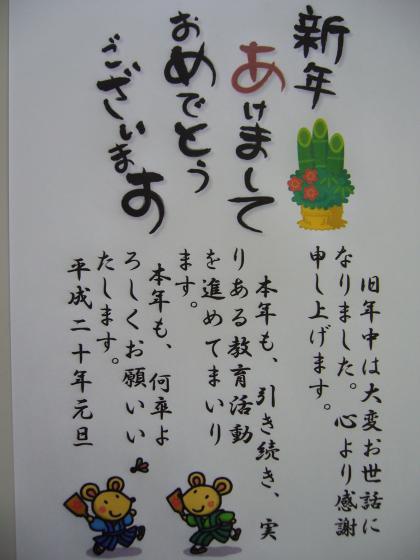 新年
あけまして
おめでとう
ございます
旧年中は大変お世話に
なりました。心より感謝
申し上げます。
本年も、引き続き、実
りある教育活動
を進めてまいり
ます。
本年も、何卒よ
ろしくお願いい
たします。
平成二十年元旦